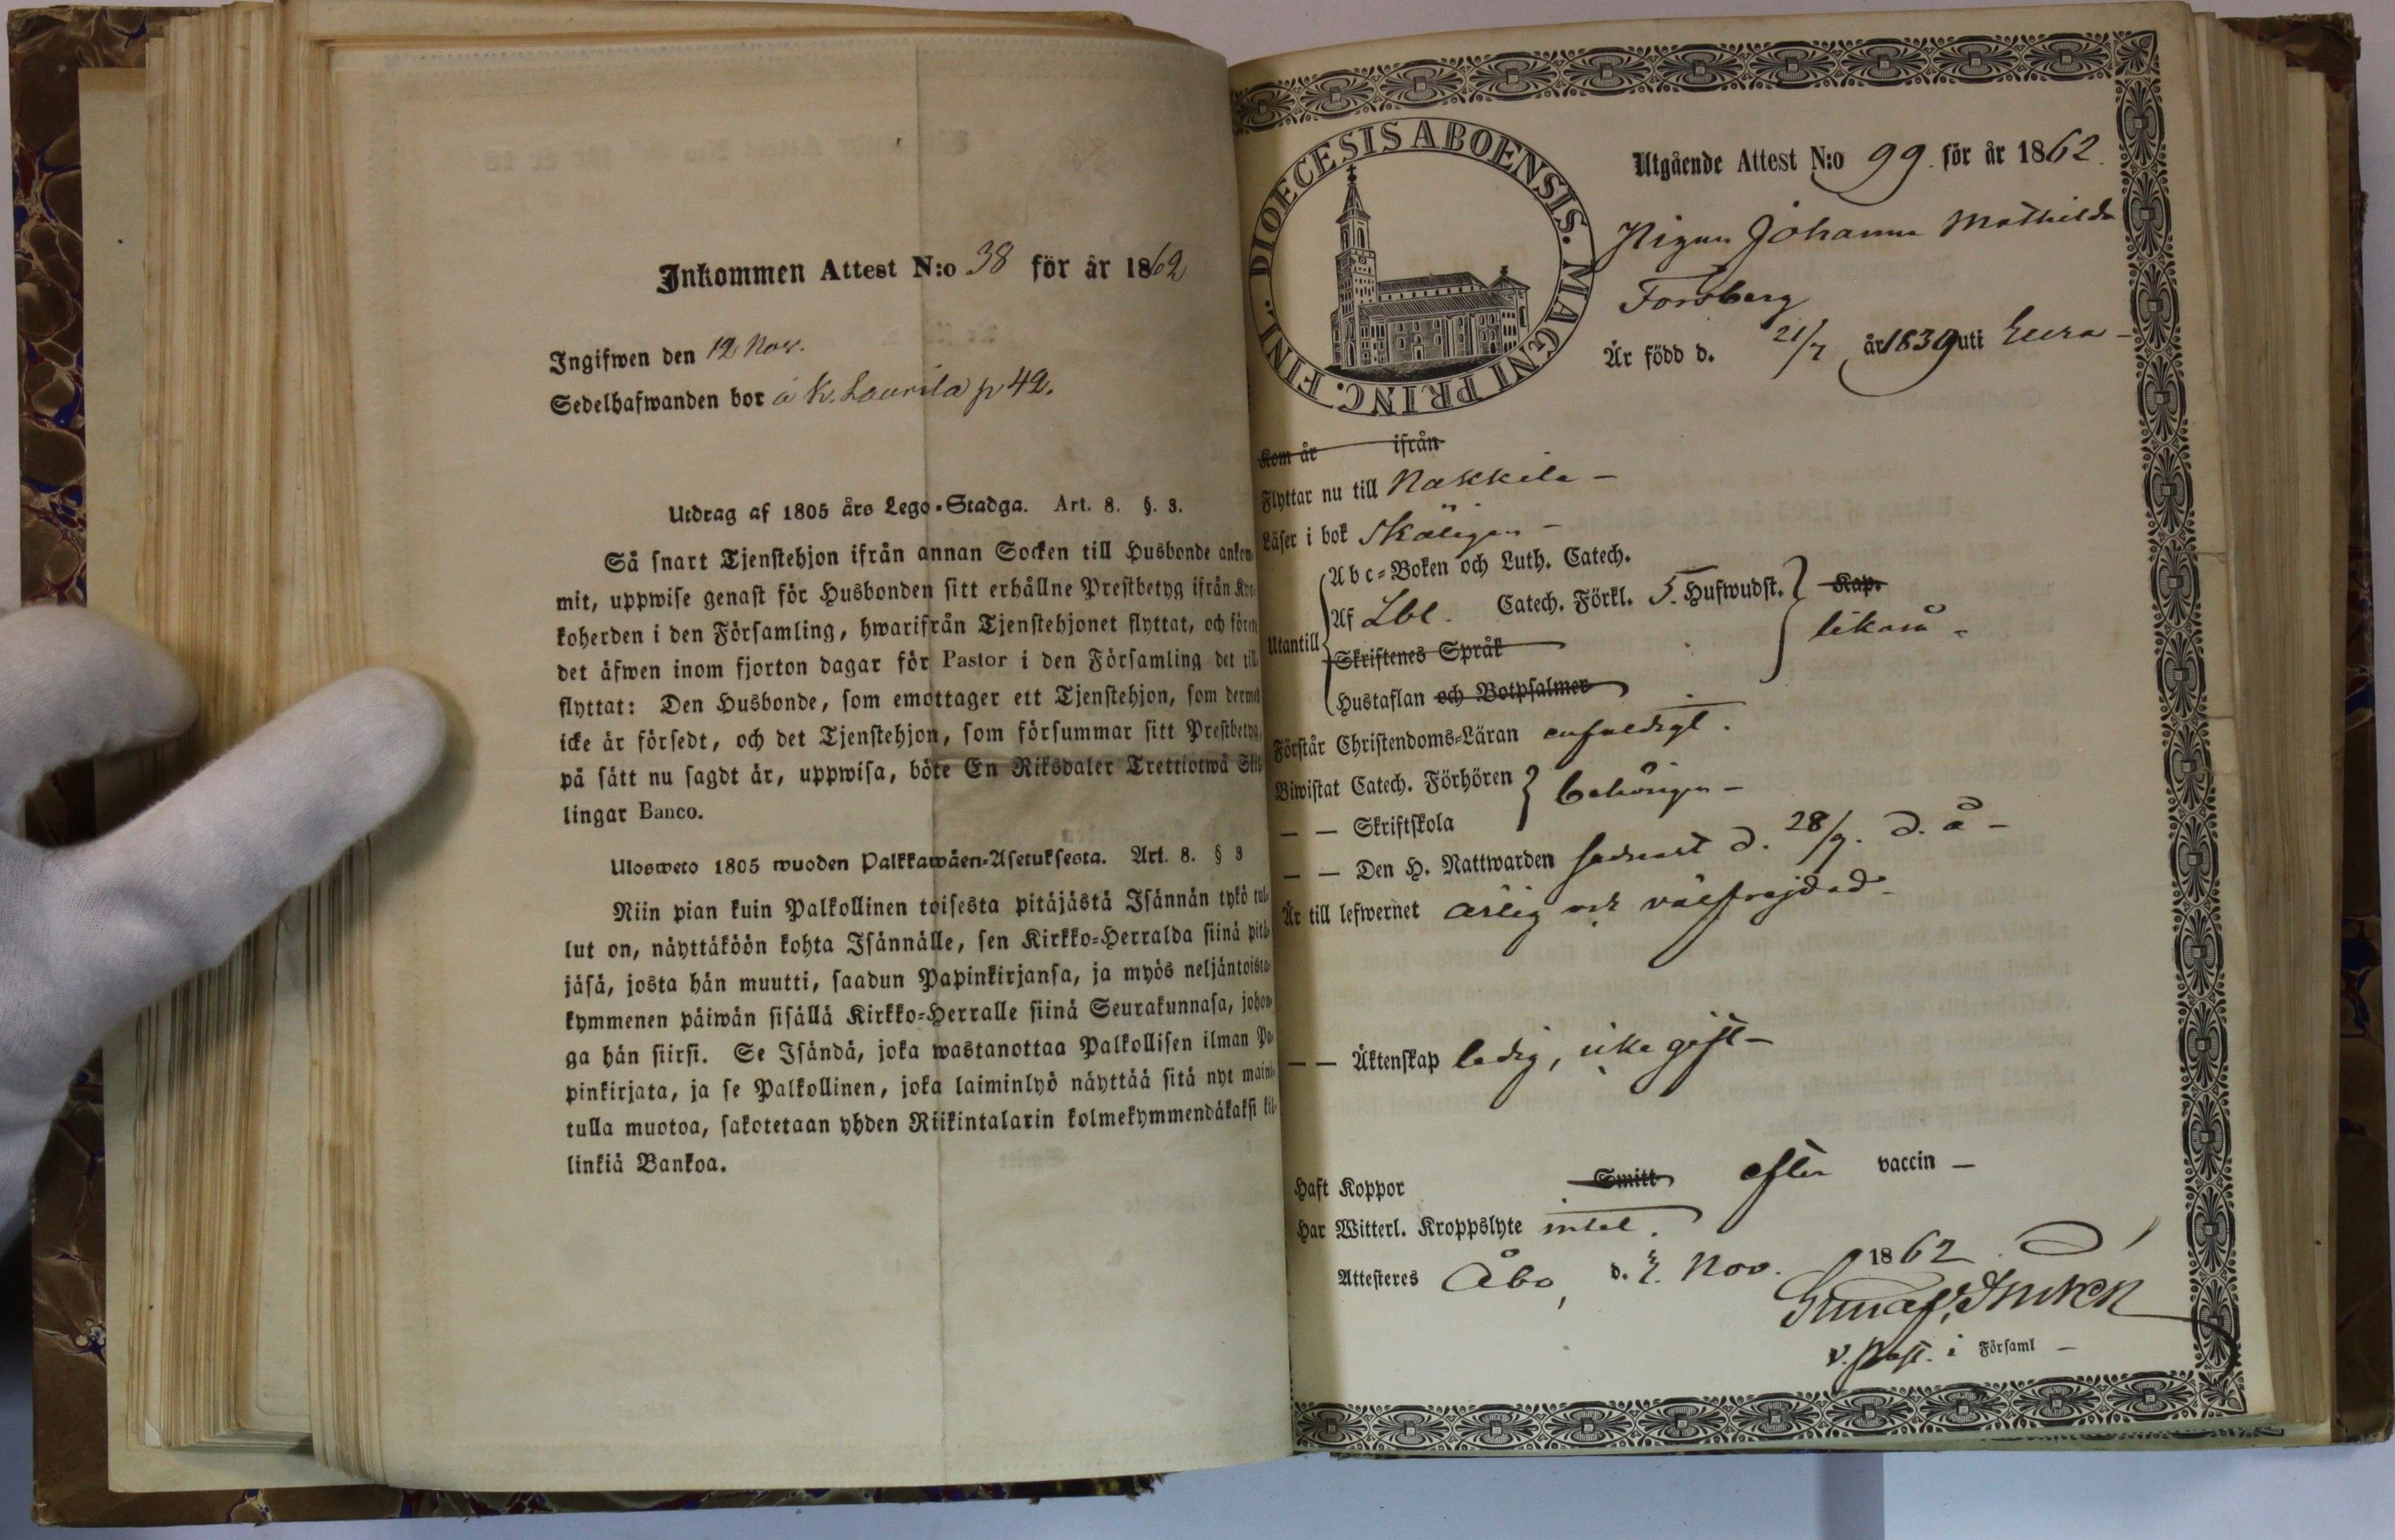 Inkommen Attest N:o 38 för år 1862
Ingifwen den 12 Nov.
Sedelhafwanden bor å K. Laurila p 42.
Utdrag af 1805 års Lego-Stadga. Art. 8. §. 3.
Så snart Tjenstehjon ifrån annan Socken till Husbonde ankom-
mit, uppwise genast för Husbonden sitt erhållne Prestbetyg ifrån
koherden i den Församling, hwarifrån Tjenstehjonet flyttat, och
det äfwen inom fjorton dagar för Pastor i den Församling det till
flyttat: Den Husbonde, som emottager ett Tjenstehjon, som dermed
icke är försedt, och det Tjenstehjon, som försummar sitt Prestbetyg,
på sätt nu sagdt är, uppwisa, böte En Riksdaler Trettiotwå Skil-
lingar Banco.
Ulosweto 1805 wuoden Palkkawäen-Asetuksesta. Art. 8. § 3
Niin pian kuin Palkollinen toisesta pitäjästä Isännän tykö tul-
lut on, näyttäköön kohta Isännälle, sen Kirkko-Herralda siinä pitä-
jäsä, josta hän muutti, saadun Papinkirjansa, ja myös neljäntoista-
kymmenen päiwän sisällä Kirkko-Herralle siinä Seurakunnasa, johon-
ga hän siirsi. Se Isändä, joka wastanottaa Palkollisen ilman Pa-
pinkirjata, ja se Palkollinen, joka laiminlyö näyttää sitä nyt maini-
tulla muotoa, sakotetaan yhden Riikintalarin kolmekymmendäkaksi kil-
linkiä Bankoa.
DIOECESIS ABOENSIS. MAGNI PRINC. FINL.
Utgående Attest N:o 99. för år 1862.
Pigan Johanna Mathilda
Forsberg
Är född d. 21/7 år 1839 uti Eura -
Kom år ifrån
Flyttar nu till Nakkila -
Läser i bok skäligen -
Abc-Boken och Luth. Catech.
Af Lbl. Catech. Förkl. 5. Hufwudst. Kap.
Utantill likaså -
Skriftenes Språk
Hustaflan och Botpsalmer
Förstår Christendoms-Läran enfaldigt.
Biwistat Catech. Förhören behörigen -
— — Skriftskola
— — Den H. Nattwarden sednast d. 28/9. d. å -
Är till lefwernet ärlig och välfrejdad -
— — Äktenskap ledig, icke gift -
Haft Koppor Smitt efter vaccin —
Har Witterl. Kroppslyte intet.
Attesteres Åbo, d. Nov. 1862
v. Past. i Församl —